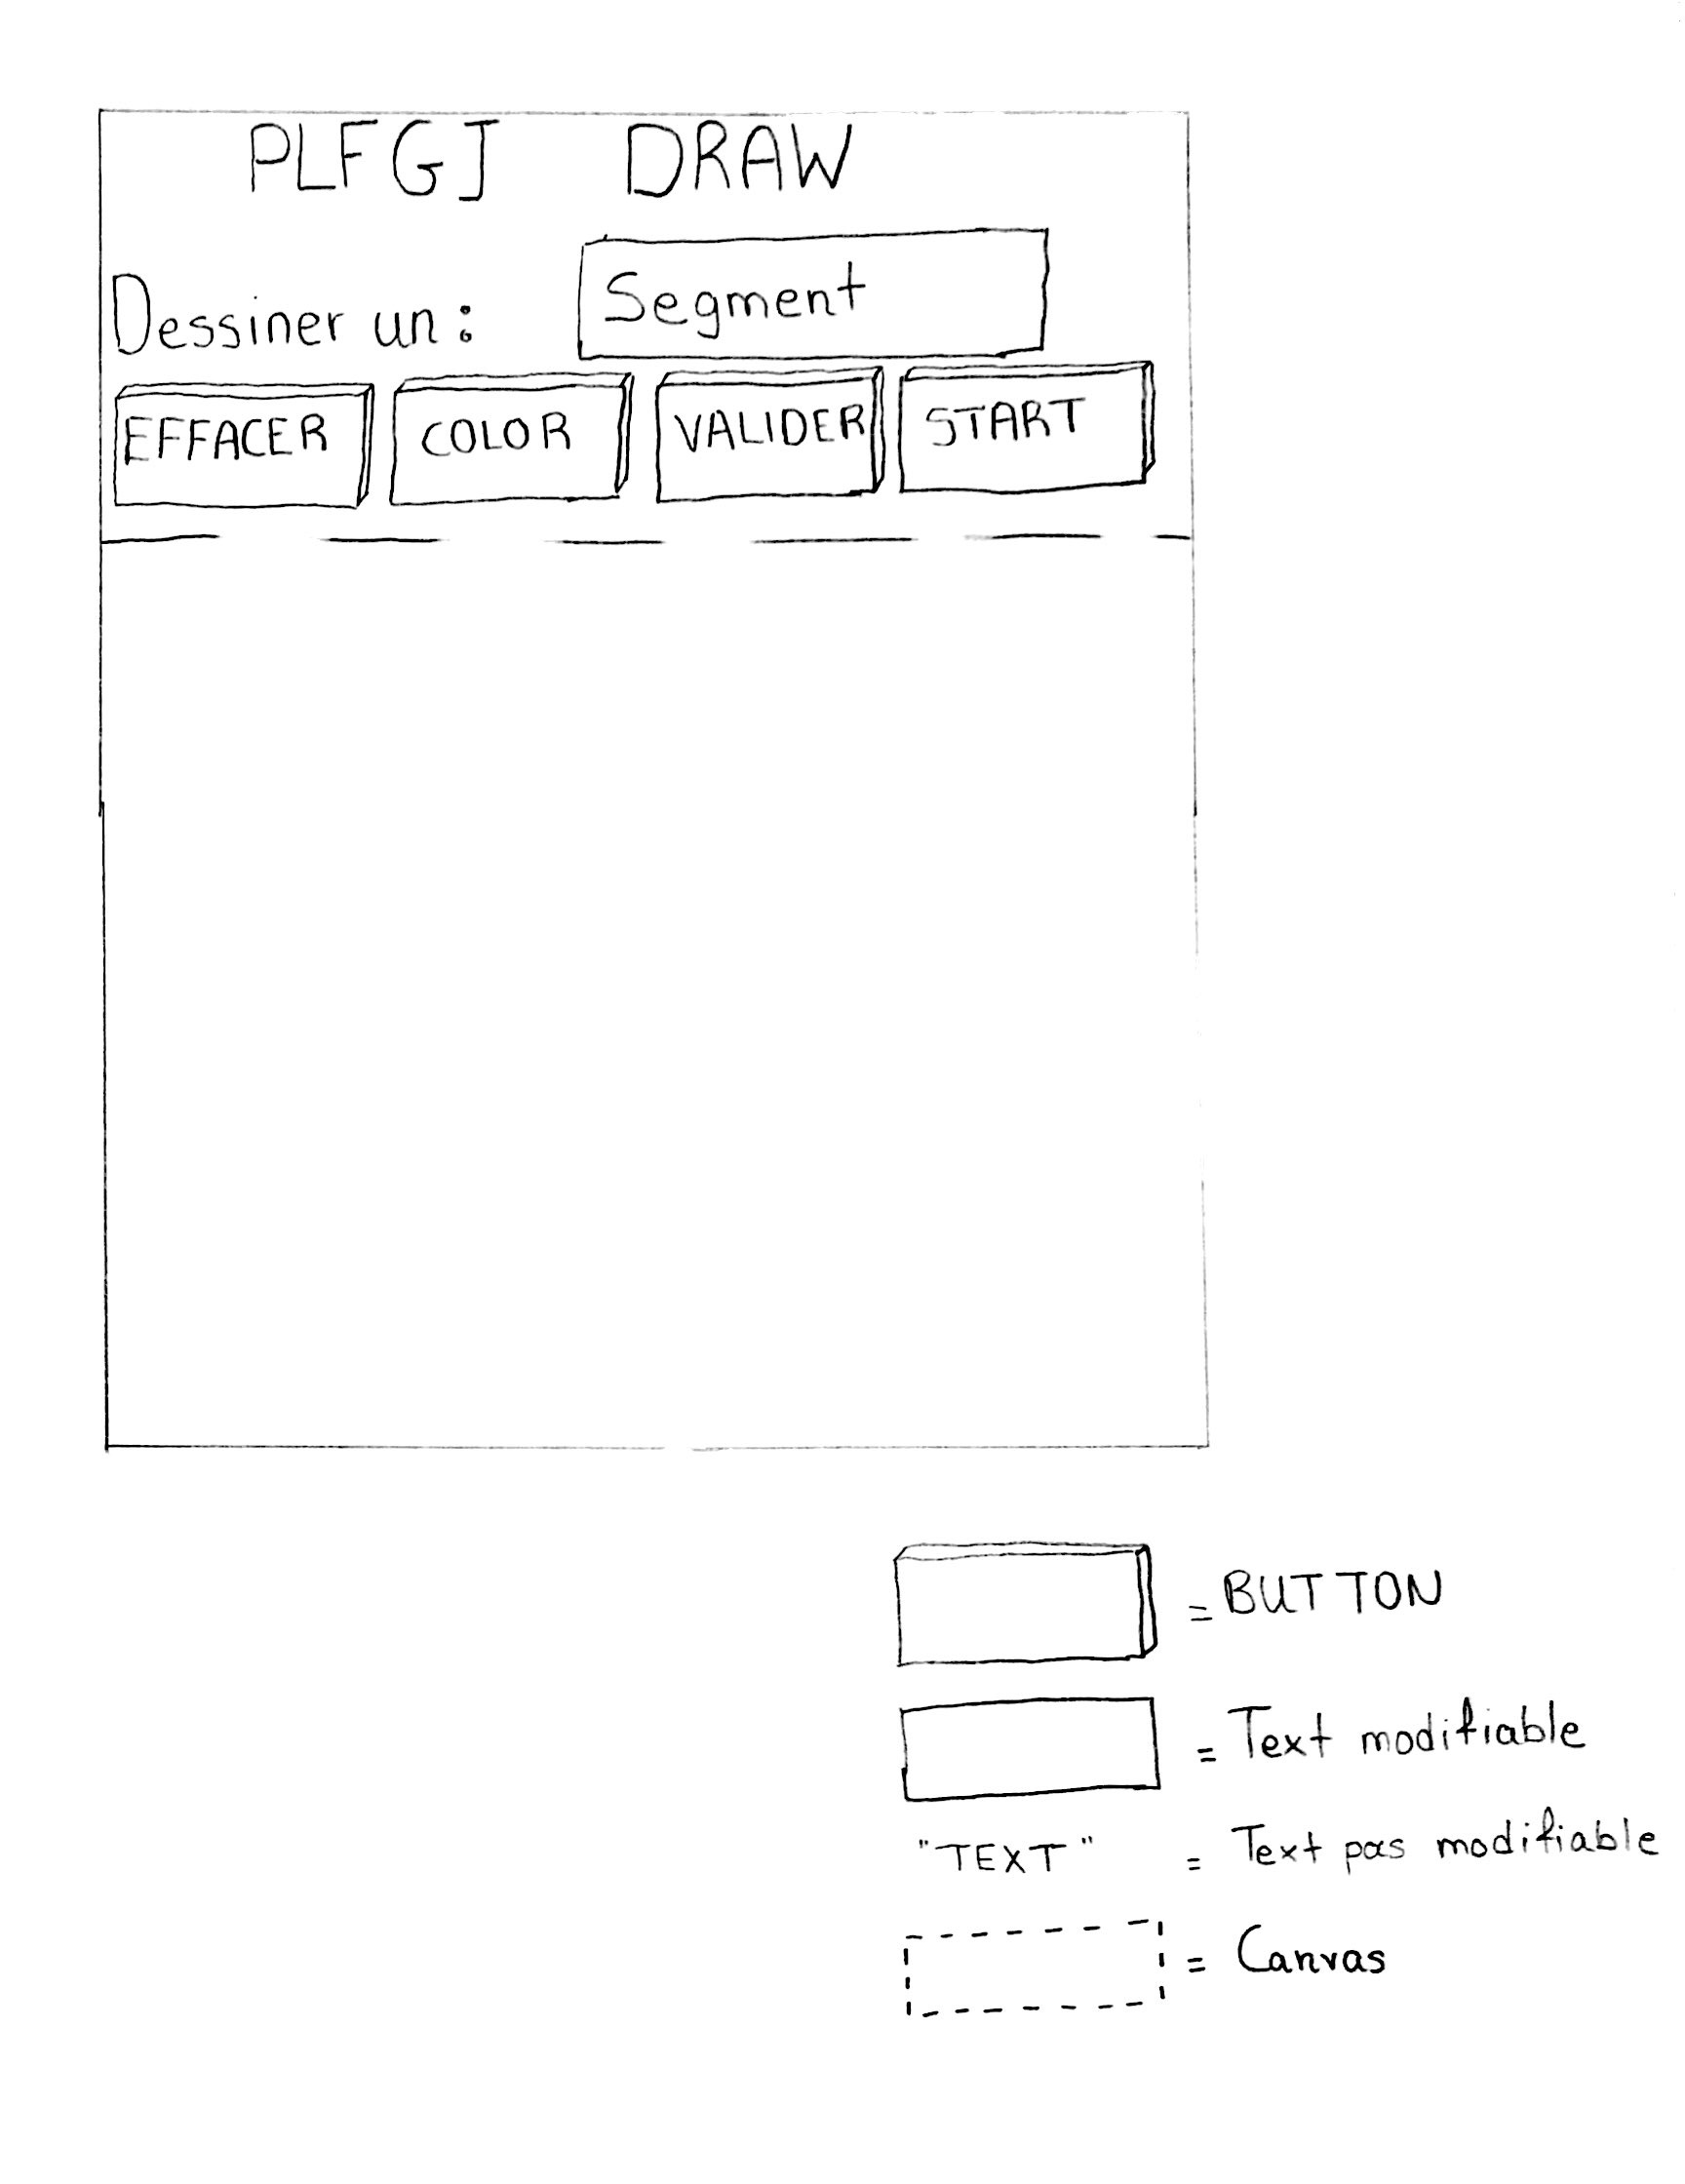 PLFGJ DRAW
Dessiner un : Segment
EFFACER COLOR VALIDER START
= BUTTON
= Text modifiable
"TEXT" = Text pas modifiable
= Canvas